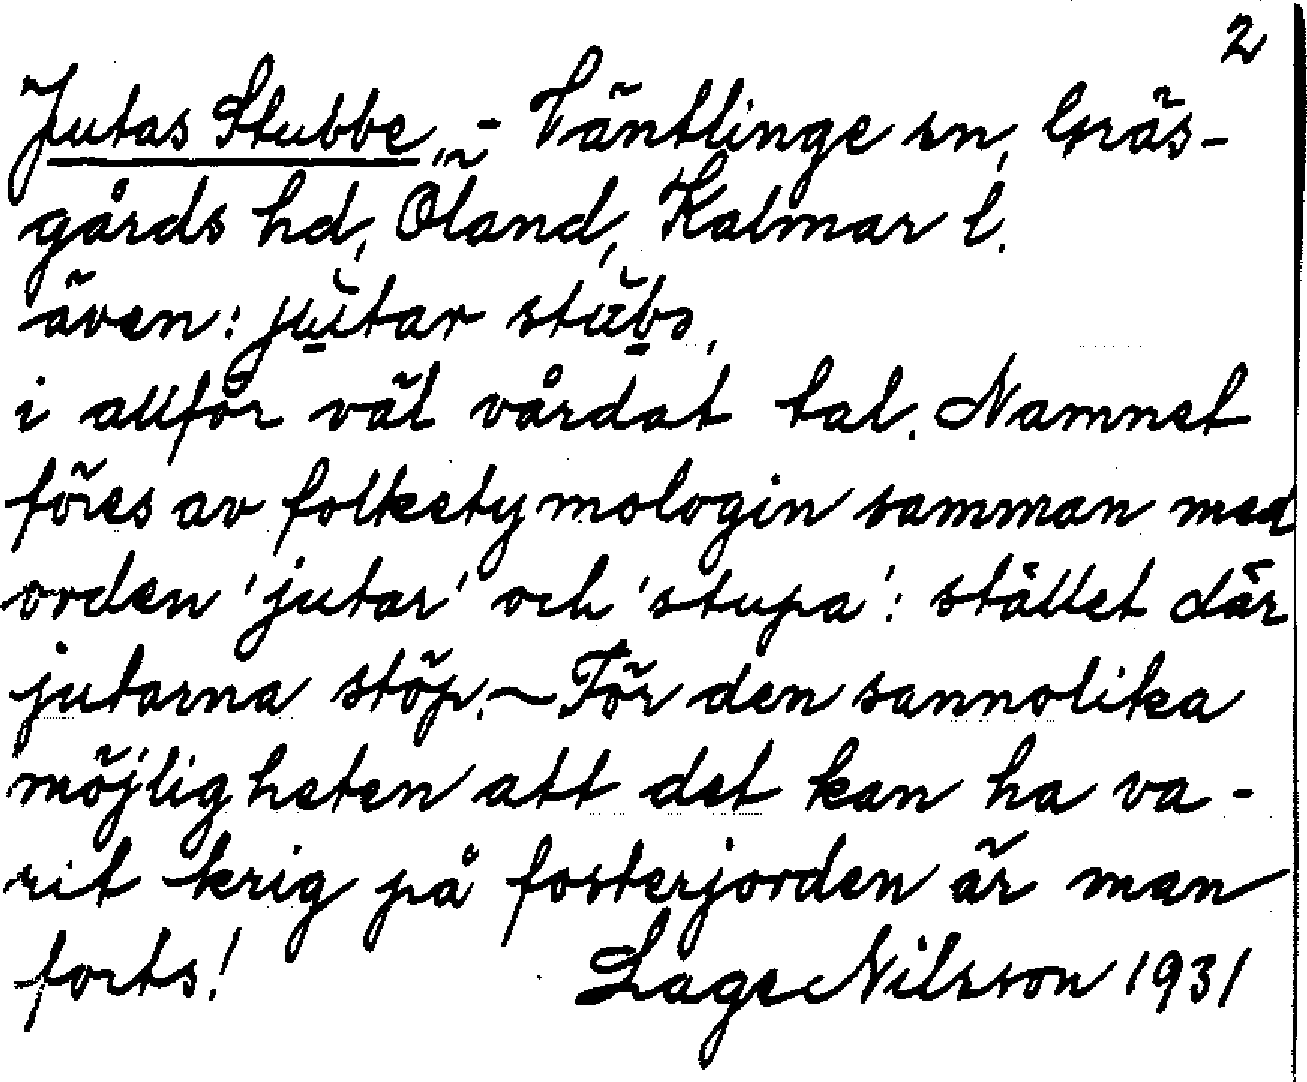 2
Jutas Stubbe, - Väntlinge sn, Gräs-
gårds hd, Öland, Kalmar l.
även: jutar stubə,
i allför väl vårdat tal. Namnet
föres av folketymologin samman med
orden 'jutar' och 'stupa': stället där
jutarna stöp. - För den sannolika
möjligheten att det kan ha va-
rit krig på fosterjorden är man
forts! Lage Nilsson 1931